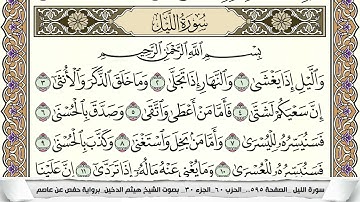 سُورَةُ اللَّيْلِ
بِسْمِ اللَّهِ الرَّحْمَٰنِ الرَّحِيمِ
وَاللَّيْلِ إِذَا يَغْشَىٰ ١ وَالنَّهَارِ إِذَا تَجَلَّىٰ ٢ وَمَا خَلَقَ الذَّكَرَ وَالْأُنثَىٰ ٣
إِنَّ سَعْيَكُمْ لَشَتَّىٰ ٤ فَأَمَّا مَنْ أَعْطَىٰ وَاتَّقَىٰ ٥ وَصَدَّقَ بِالْحُسْنَىٰ ٦
فَسَنُيَسِّرُهُ لِلْيُسْرَىٰ ٧ وَأَمَّا مَن بَخِلَ وَاسْتَغْنَىٰ ٨ وَكَذَّبَ بِالْحُسْنَىٰ ٩
فَسَنُيَسِّرُهُ لِلْعُسْرَىٰ ١٠ وَمَا يُغْنِي عَنْهُ مَالُهُ إِذَا تَرَدَّىٰ ١١ إِنَّ عَلَيْنَا
سورة الليل _الصفحة ٥٩٥_ الحزب ٦٠_الجزء ٣٠_ بصوت الشيخ هيثم الدخين_برواية حفص عن عاصم